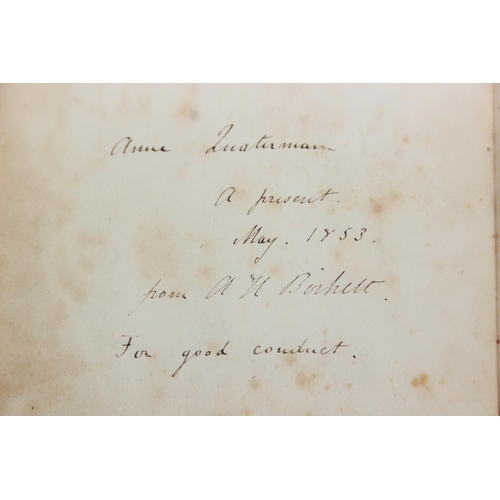 Anne Quaterman
A present.
May. 1853.
from A H Birkett.
For good conduct.